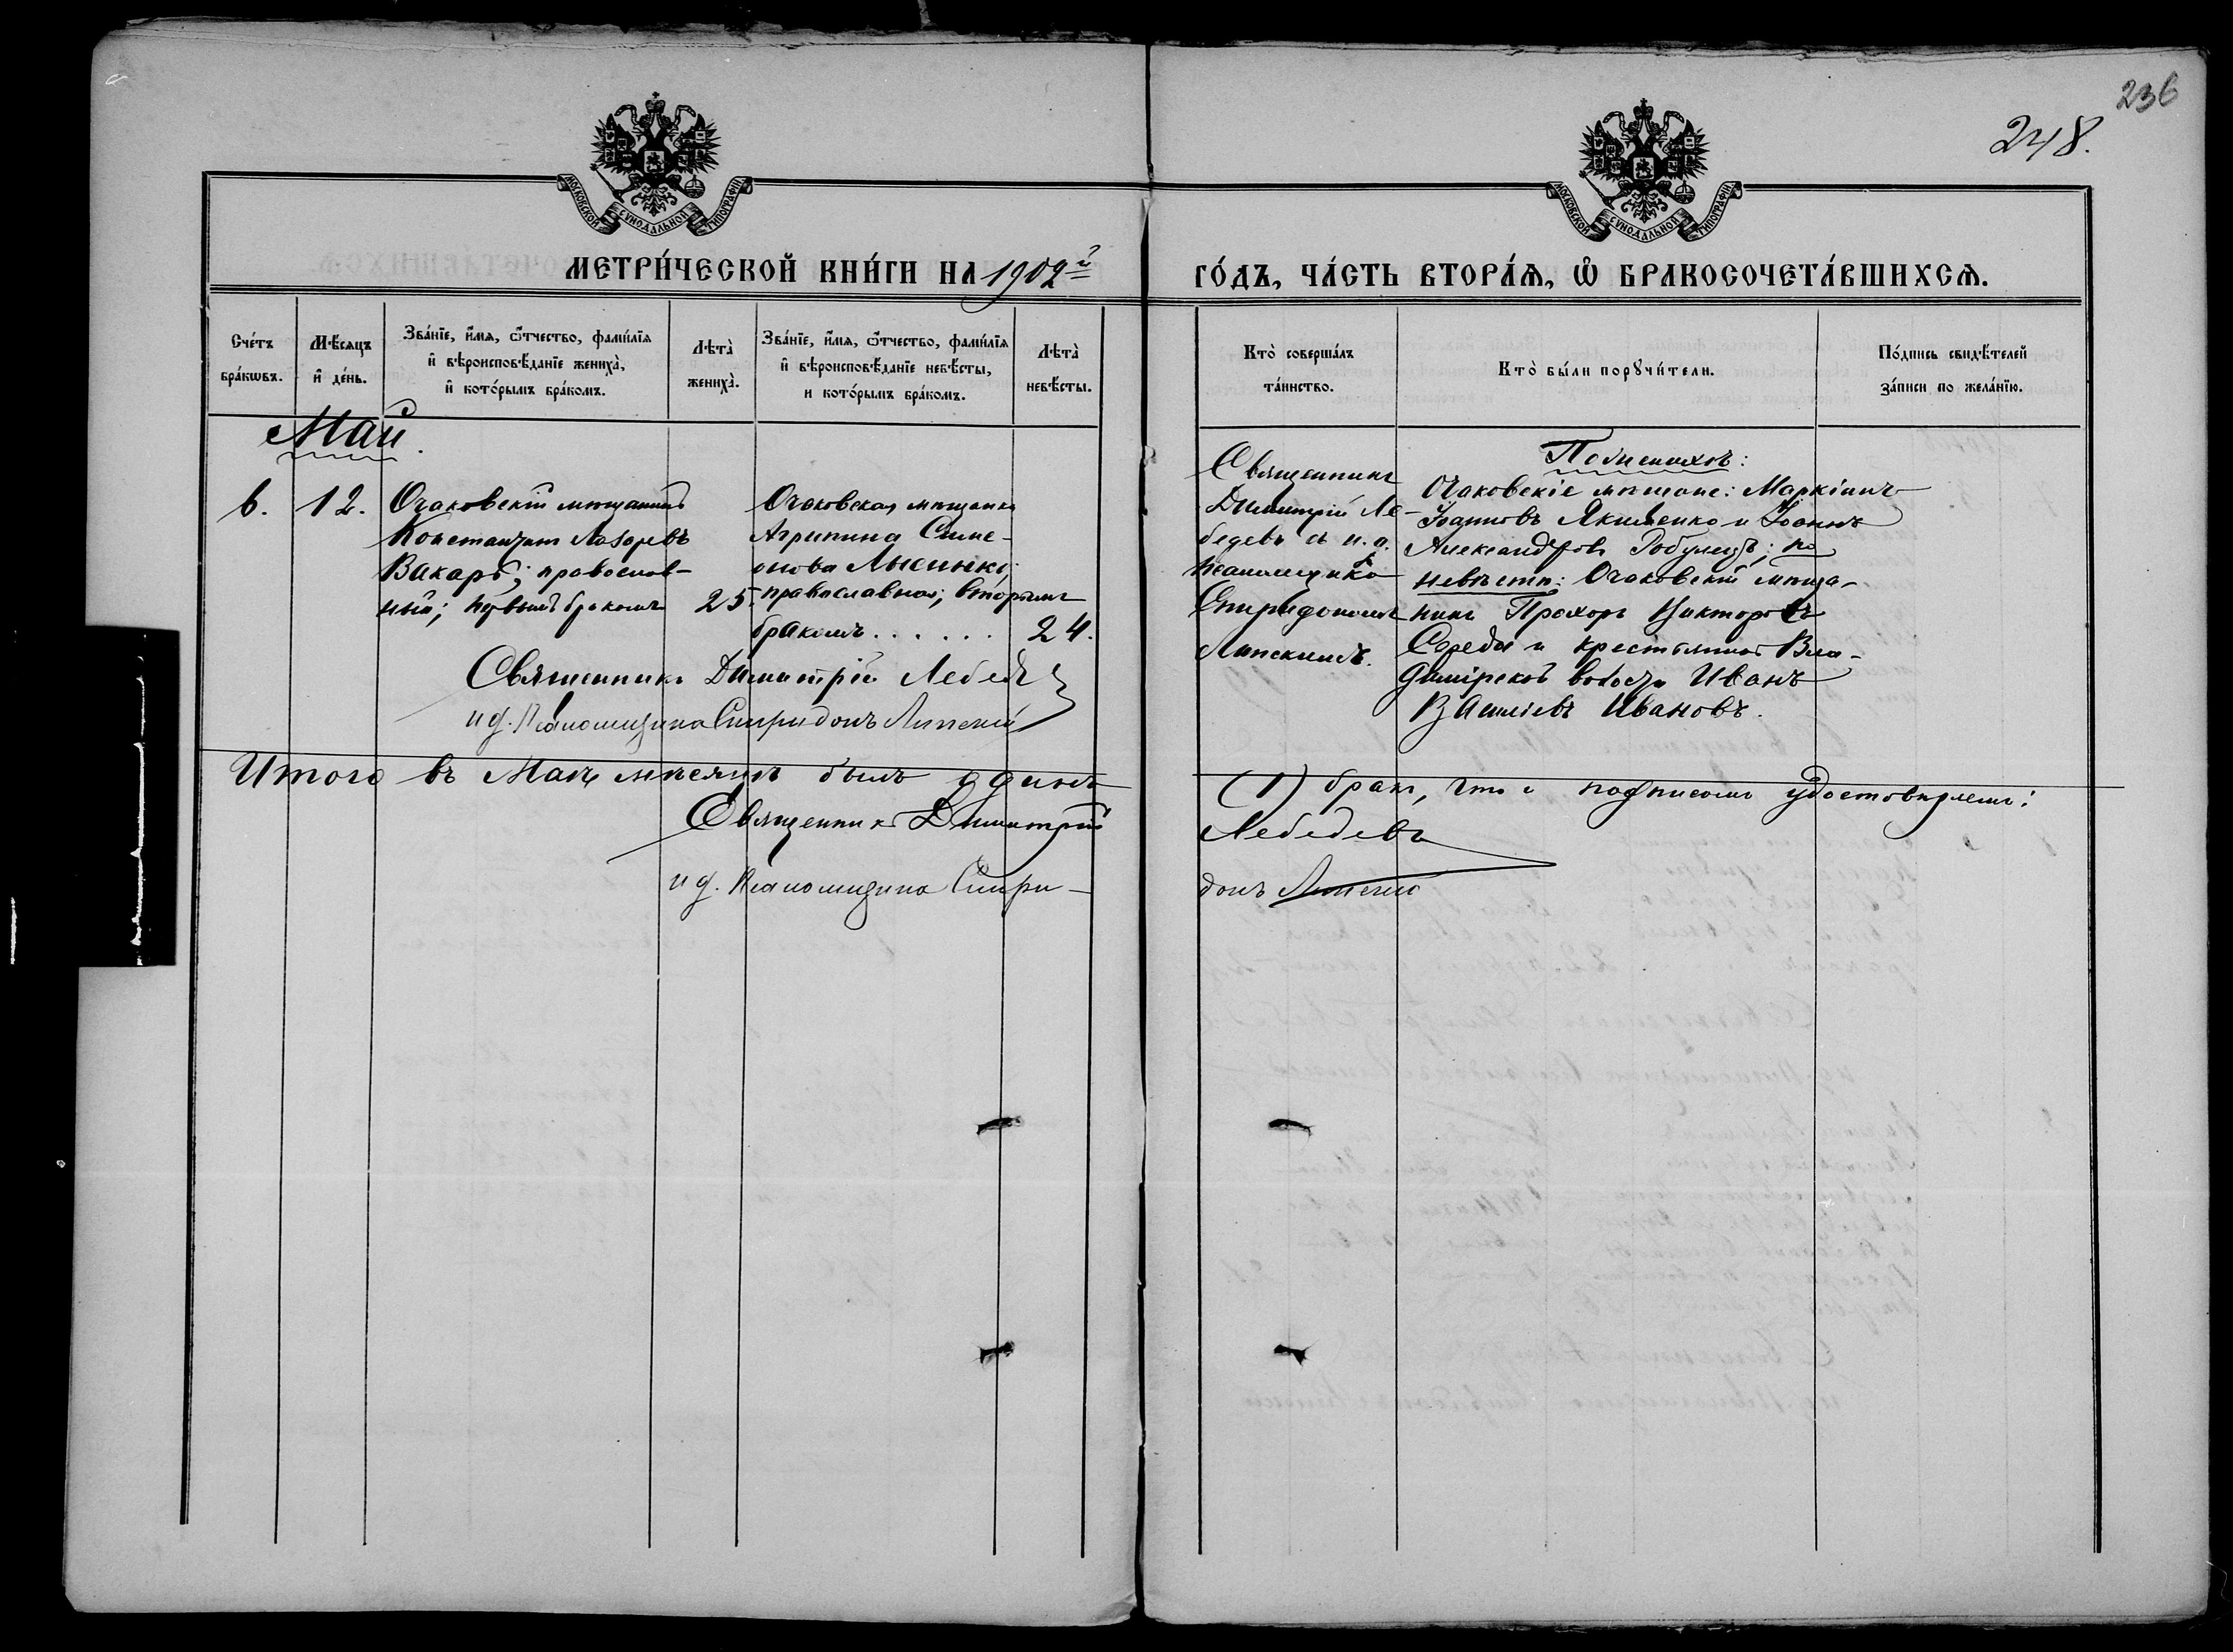 236
248.
МОСКОВСКОЙ СѴНОДАЛЬНОЙ ТИПОГРАФІИ
МОСКОВСКОЙ СѴНОДАЛЬНОЙ ТИПОГРАФІИ
МЕТРИ́ЧЕСКОЙ КНИ́ГИ НА 1902й
ГО́ДЪ, ЧА́СТЬ ВТОРА́Ѧ, Ѡ҆ БРАКОСОЧЕТА́ВШИХСѦ.
Сче́тъ бра́кѡвъ.
Мѣ́сяцъ и҆ де́нь.
Зва́нїе, и҆́мя, ѻ҆́тчество, фами́лїя и҆ вѣроисповѣ́данїе жениха̀, и҆ кото́рымъ бра́комъ.
Лѣта̀ жениха̀.
Зва́нїе, и҆́мя, ѻ҆́тчество, фами́лїя и҆ вѣроисповѣ́данїе невѣ́сты, и кото́рымъ бра́комъ.
Лѣта̀ невѣ́сты.
Кто̀ соверша́лъ та́инство.
Кто̀ бы́ли порꙋчи́тели.
По́дпись свидѣ́телей за́писи по жела́нїю.
Май.
6.
12.
Очаковскій мѣщанинъ
Константинъ Лазаревъ
Вакаръ; православ-
ный; первымъ бракомъ
25.
Очаковская мѣщанка
Агрипина Симе-
онова Лысенко;
православная; вторымъ
бракомъ......
24.
Священникъ
Димитрій Ле-
бедевъ съ и.д.
псаломщика
Спиридономъ
Липскимъ.
По женихѣ:
Очаковскіе мѣщане: Маркіанъ
Іоанновъ Якименко и Іоаннъ
Александровъ; по
невѣстѣ: Очаковскій мѣща-
нинъ Прохоръ Викторовъ
Середа и крестьянинъ Вла-
димірской волости Иванъ
Васильевъ Ивановъ.
Священникъ Димитрій Лебедевъ
и д. Псаломщика Спиридонъ Липскій
Итого въ Маѣ мѣсяцѣ былъ одинъ (1) бракъ, что и подписомъ удостовѣряемъ:
Священникъ Димитрій Лебедевъ
и д. Псаломщика Спири-донъ Липскій